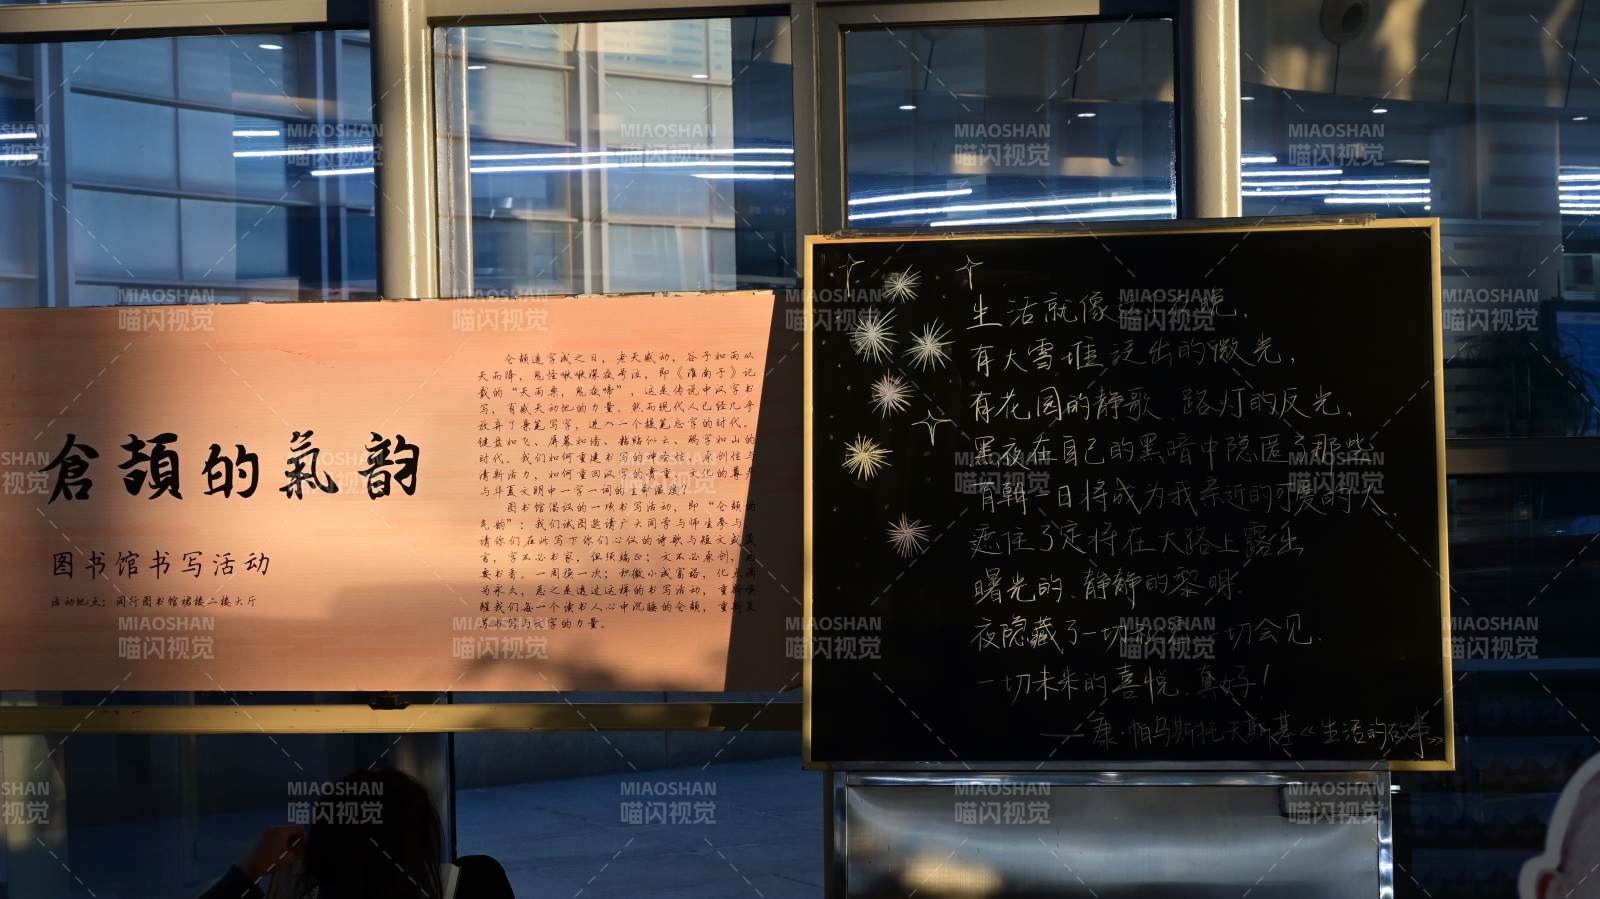 倉頡的氣韵
图书馆书写活动
活动地点：闵行图书馆裙楼二楼大厅
仓颉造字成之日，老天感动，谷子和雨从
天而降，鬼怪啾啾深夜号泣，即《淮南子》记
载的“天雨粟，鬼夜啼”，这是传说中汉字书
写，有感天动地的力量。然而现代人已经几乎
放弃了秉笔写字，进入一个提笔忘字的时代。
键盘如飞、屏幕如墙、粘贴似云、码字如山的
时代。我们如何重建书写的神圣性，原创性与
清新活力，如何重回汉字的贵重，文化的尊严
与华夏文明中一字一词的生命温度？
图书馆倡议的一项书写活动，即“仓颉的
气韵”：我们试图邀请广大同学与师生参与，
请你们在此写下你们心仪的诗歌与短文或
言，字不必书家，但须端正；文不必原创，
要书香。一周换一次；积微小成富裕，化
为永久，总之是透过这样的书写活动，重新唤
醒我们每一个读书人心中沉睡的仓颉，重新
书写与汉字的力量。
生活就像这个夜晚，
有大雪堆泛出的微光，
有花园的静歌、路灯的反光，
黑夜在自己的黑暗中隐匿了那些
有朝一日将成为我亲近的可爱的人，
遮住了定将在大路上露出
曙光的、静静的黎明。
夜隐藏了一切 一切会见、
一切未来的喜悦，真好！
——康·帕乌斯托夫斯基《生活的故事》
MIAOSHAN
喵闪视觉